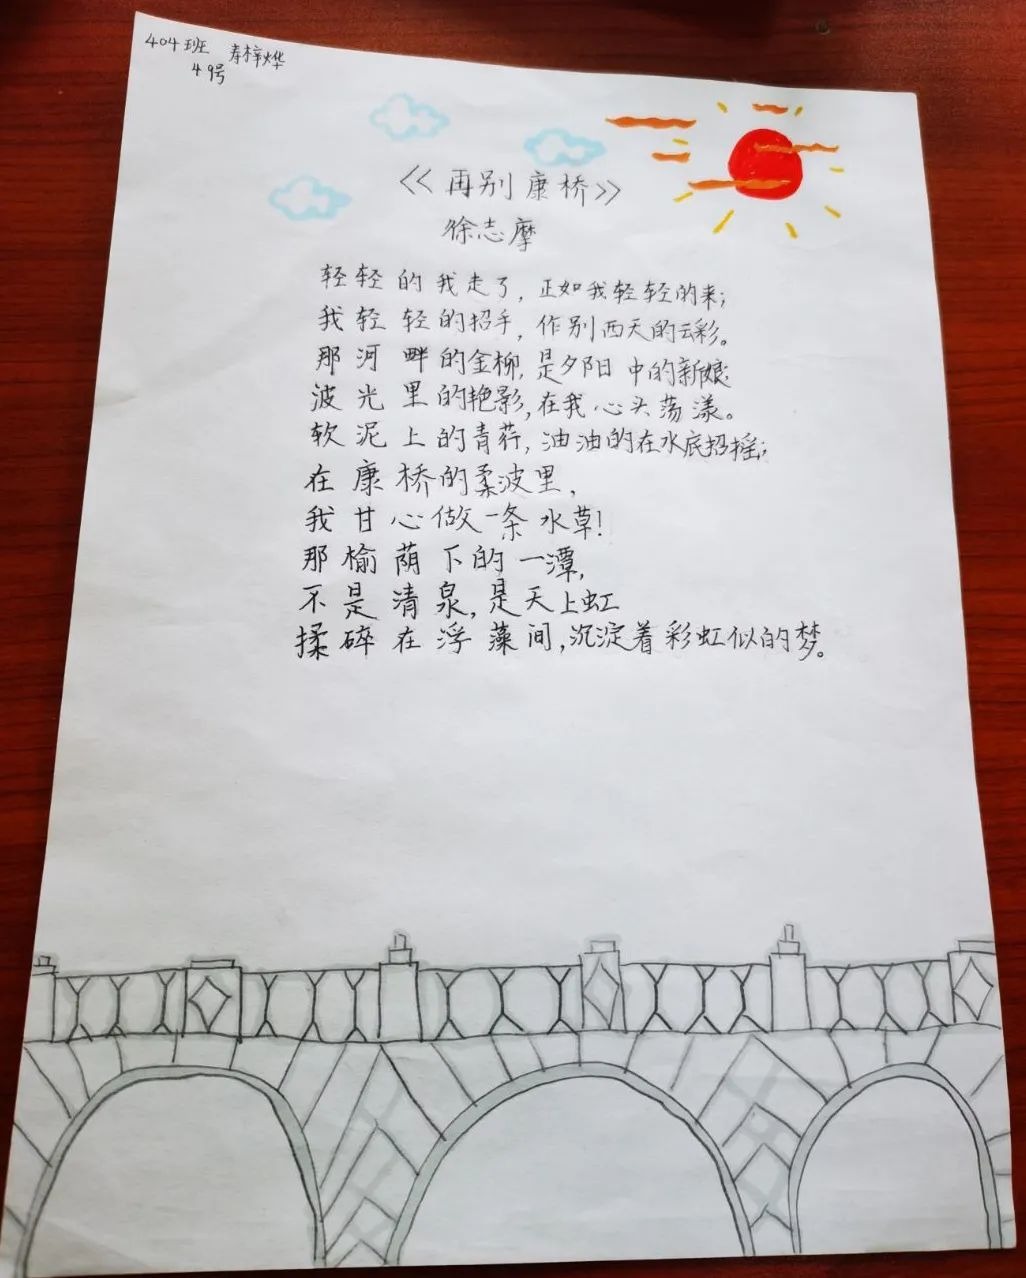 404班 寿梓烨
49号
《再别康桥》
徐志摩
轻轻的我走了，正如我轻轻的来；
我轻轻的招手，作别西天的云彩。
那河畔的金柳，是夕阳中的新娘
波光里的艳影，在我心头荡漾。
软泥上的青荇，油油的在水底招摇；
在康桥的柔波里，
我甘心做一条水草！
那榆荫下的一潭，
不是清泉，是天上虹
揉碎在浮藻间，沉淀着彩虹似的梦。